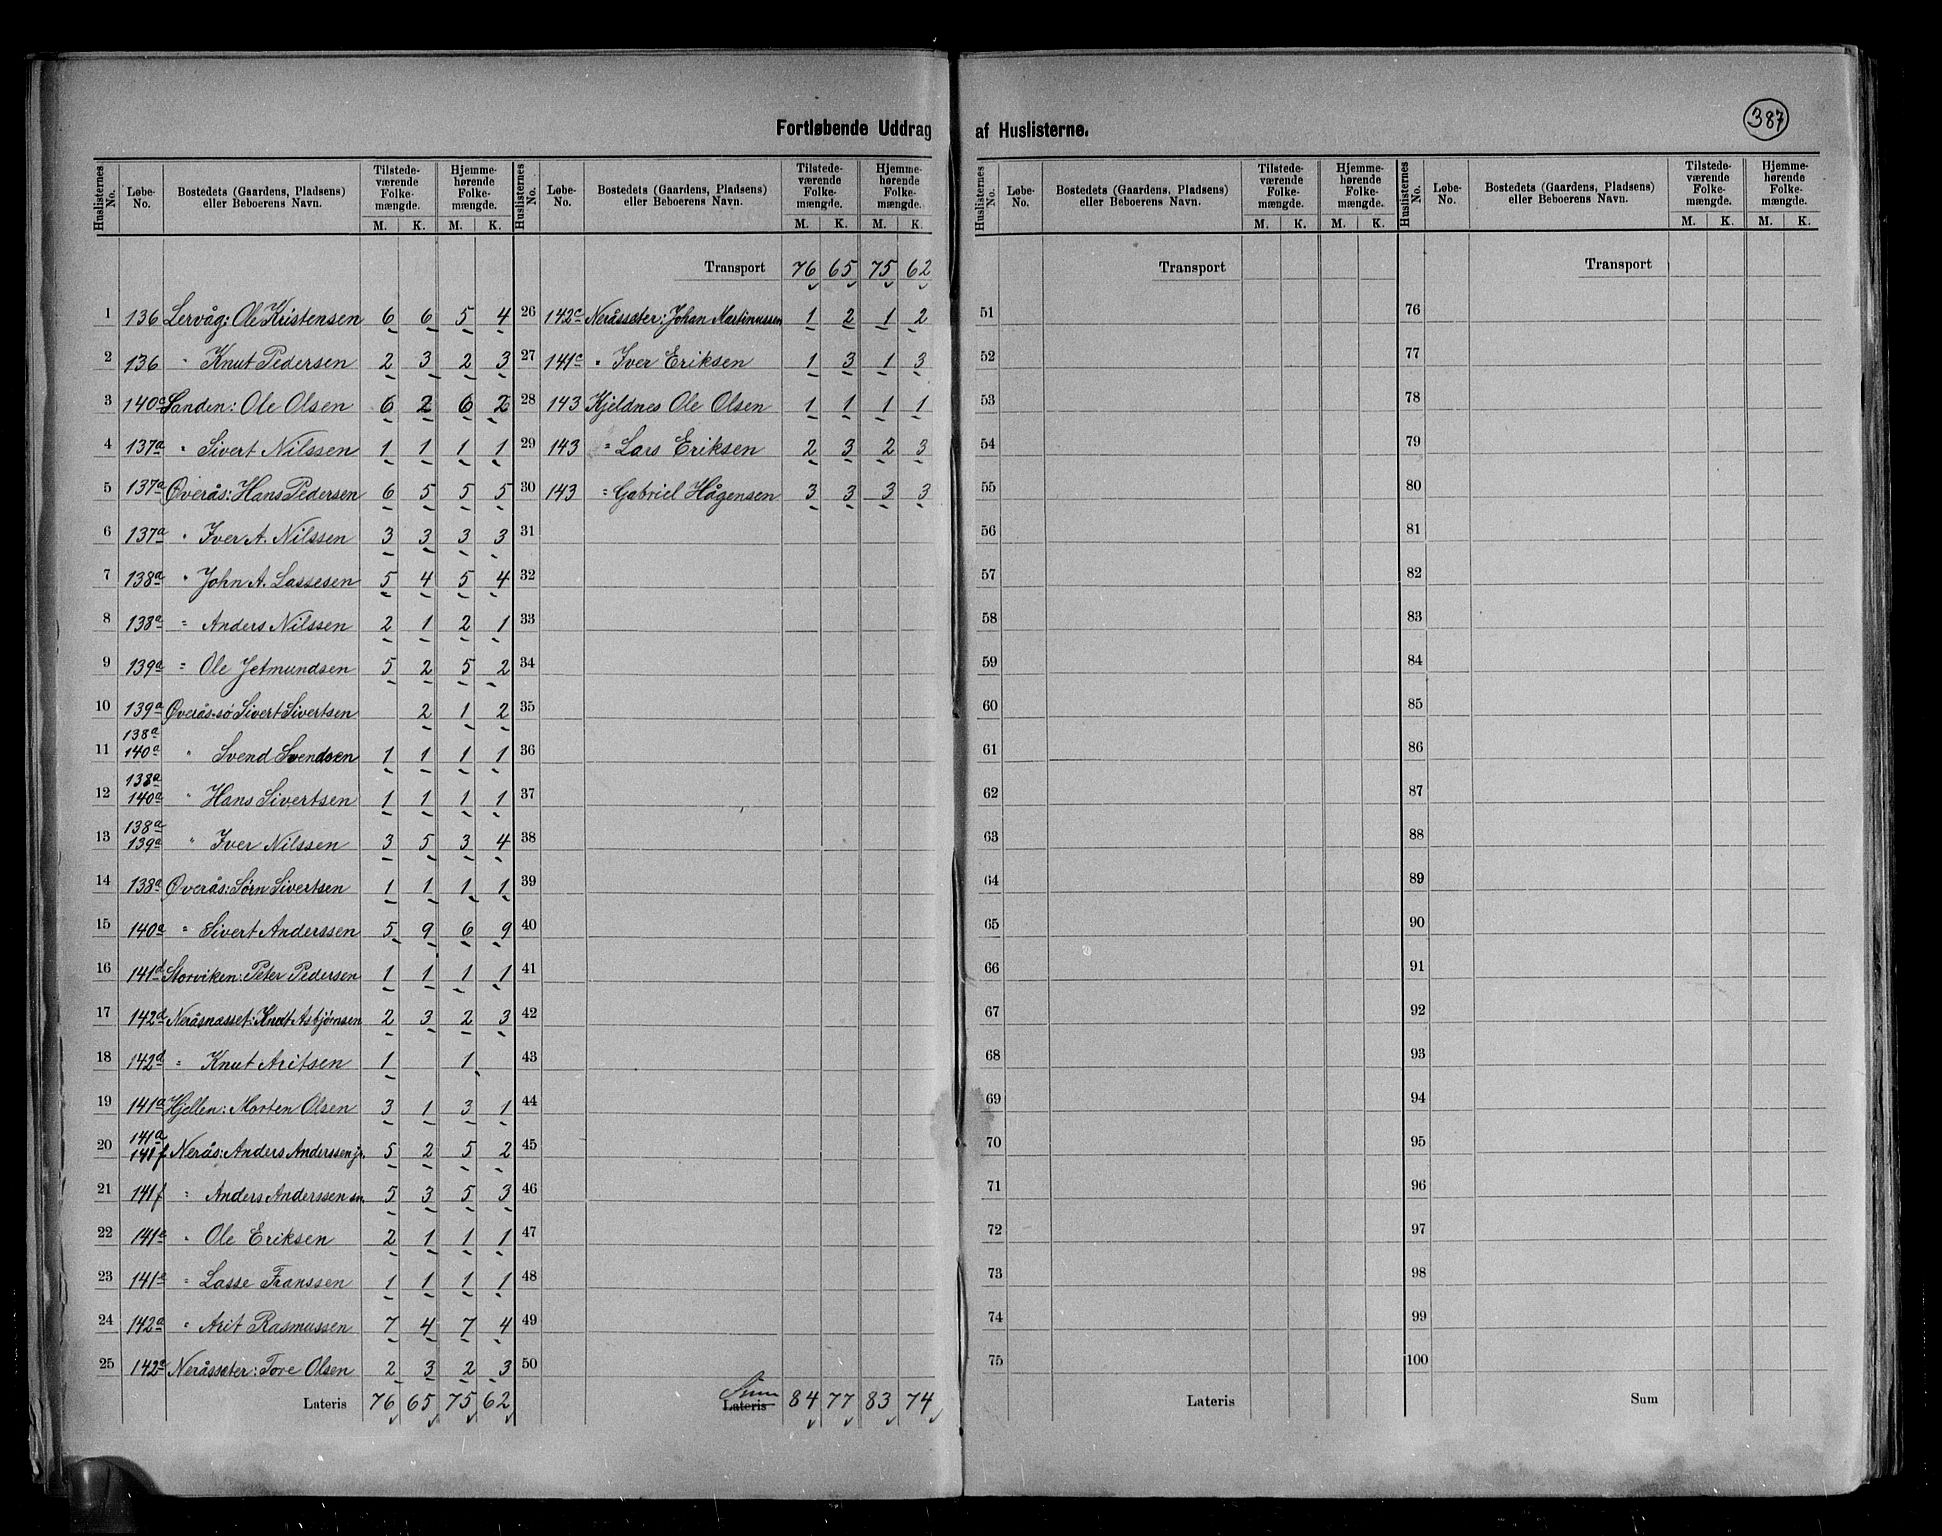 Fortløbende Uddrag af Huslisterne.
387
Huslisternes No. | Løbe-No. | Bostedets (Gaardens, Pladsens) eller Beboerens Navn. | Tilstedeværende Folkemængde. M. K. | Hjemmehørende Folkemængde. M. K.
1 | 136 | Lervåg: Ole Kristensen | 6 | 6 | 5 | 4
2 | 136 | " Knut Pedersen | 2 | 3 | 2 | 3
3 | 140c | Sanden: Ole Olsen | 6 | 2 | 6 | 2
4 | 137a | " Sivert Nilssen | 1 | 1 | 1 | 1
5 | 137a | Øverås: Hans Pedersen | 6 | 5 | 5 | 5
6 | 137a | " Iver A. Nilssen | 3 | 3 | 3 | 3
7 | 138a | " John A. Lassesen | 5 | 4 | 5 | 4
8 | 138a | " Anders Nilssen | 2 | 1 | 2 | 1
9 | 139a | " Ole Jetmundsen | 5 | 2 | 5 | 2
10 | 139a | Øverås-sö Sivert Sivertsen | | 2 | 1 | 2
11 | 138a 140a | " Svend Svendsen | 1 | 1 | 1 | 1
12 | 138a 140a | " Hans Sivertsen | 1 | 1 | 1 | 1
13 | 138a 139a | " Iver Nilssen | 3 | 5 | 3 | 4
14 | 138a | Øverås: Sørn Sivertsen | 1 | 1 | 1 | 1
15 | 140a | " Sivert Anderssen | 5 | 9 | 6 | 9
16 | 141d | Storviken: Peter Pedersen | 1 | 1 | 1 | 1
17 | 142d | Neråsnasset: Knut Asbjørnsen | 2 | 3 | 2 | 3
18 | 142d | " Knut Aritsen | 1 | | 1 |
19 | 141a | Hjellen: Morten Olsen | 3 | 1 | 3 | 1
20 | 141a 141f | Nerås: Anders Anderssen jr. | 5 | 2 | 5 | 2
21 | 141f | " Anders Anderssen sn. | 5 | 3 | 5 | 3
22 | 141e | " Ole Eriksen | 2 | 1 | 1 | 1
23 | 141e | " Lasse Franssen | 1 | 1 | 1 | 1
24 | 142a | " Arit Rasmussen | 7 | 4 | 7 | 4
25 | 142a | Neråssæter: Tore Olsen | 2 | 3 | 2 | 3
Lateris 76 65 75 62
Huslisternes No. | Løbe-No. | Bostedets (Gaardens, Pladsens) eller Beboerens Navn. | Tilstedeværende Folkemængde. M. K. | Hjemmehørende Folkemængde. M. K.
Transport 76 65 75 62
26 | 142c | Neråssæter: Johan Martinussen | 1 | 2 | 1 | 2
27 | 141c | " Iver Eriksen | 1 | 3 | 1 | 3
28 | 143 | Kjeldnes Ole Olsen | 1 | 1 | 1 | 1
29 | 143 | " Lars Eriksen | 2 | 3 | 2 | 3
30 | 143 | " Gabriel Hågensen | 3 | 3 | 3 | 3
31
32
33
34
35
36
37
38
39
40
41
42
43
44
45
46
47
48
49
50
Sum
Lateris 84 77 83 74
Huslisternes No. | Løbe-No. | Bostedets (Gaardens, Pladsens) eller Beboerens Navn. | Tilstedeværende Folkemængde. M. K. | Hjemmehørende Folkemængde. M. K.
Transport
51
52
53
54
55
56
57
58
59
60
61
62
63
64
65
66
67
68
69
70
71
72
73
74
75
Lateris
Huslisternes No. | Løbe-No. | Bostedets (Gaardens, Pladsens) eller Beboerens Navn. | Tilstedeværende Folkemængde. M. K. | Hjemmehørende Folkemængde. M. K.
Transport
76
77
78
79
80
81
82
83
84
85
86
87
88
89
90
91
92
93
94
95
96
97
98
99
100
Sum